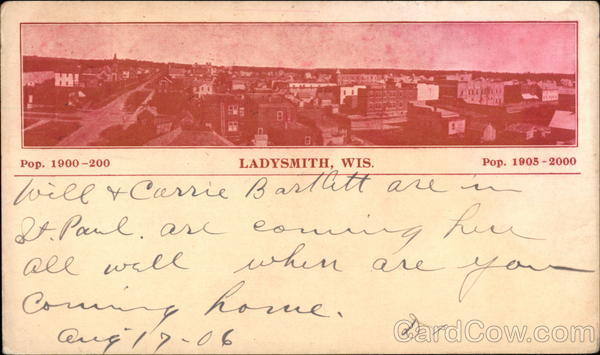 Pop. 1900-200 LADYSMITH, WIS. Pop. 1905-2000
Will & Carrie Bartlett are in
St. Paul. are coming here
all well when are you
coming home.
Aug 17-06
CardCow.com